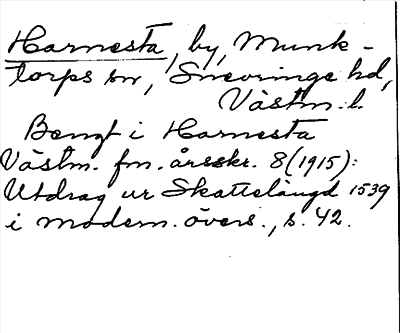 Harnesta, by, Munk-
torps sn, Snevringe hd,
Västm. l.
Bengt i Harnesta
Västm. fm. årsskr. 8 (1915):
Utdrag ur Skattelängd 1539
i modern. övers., s. 42.